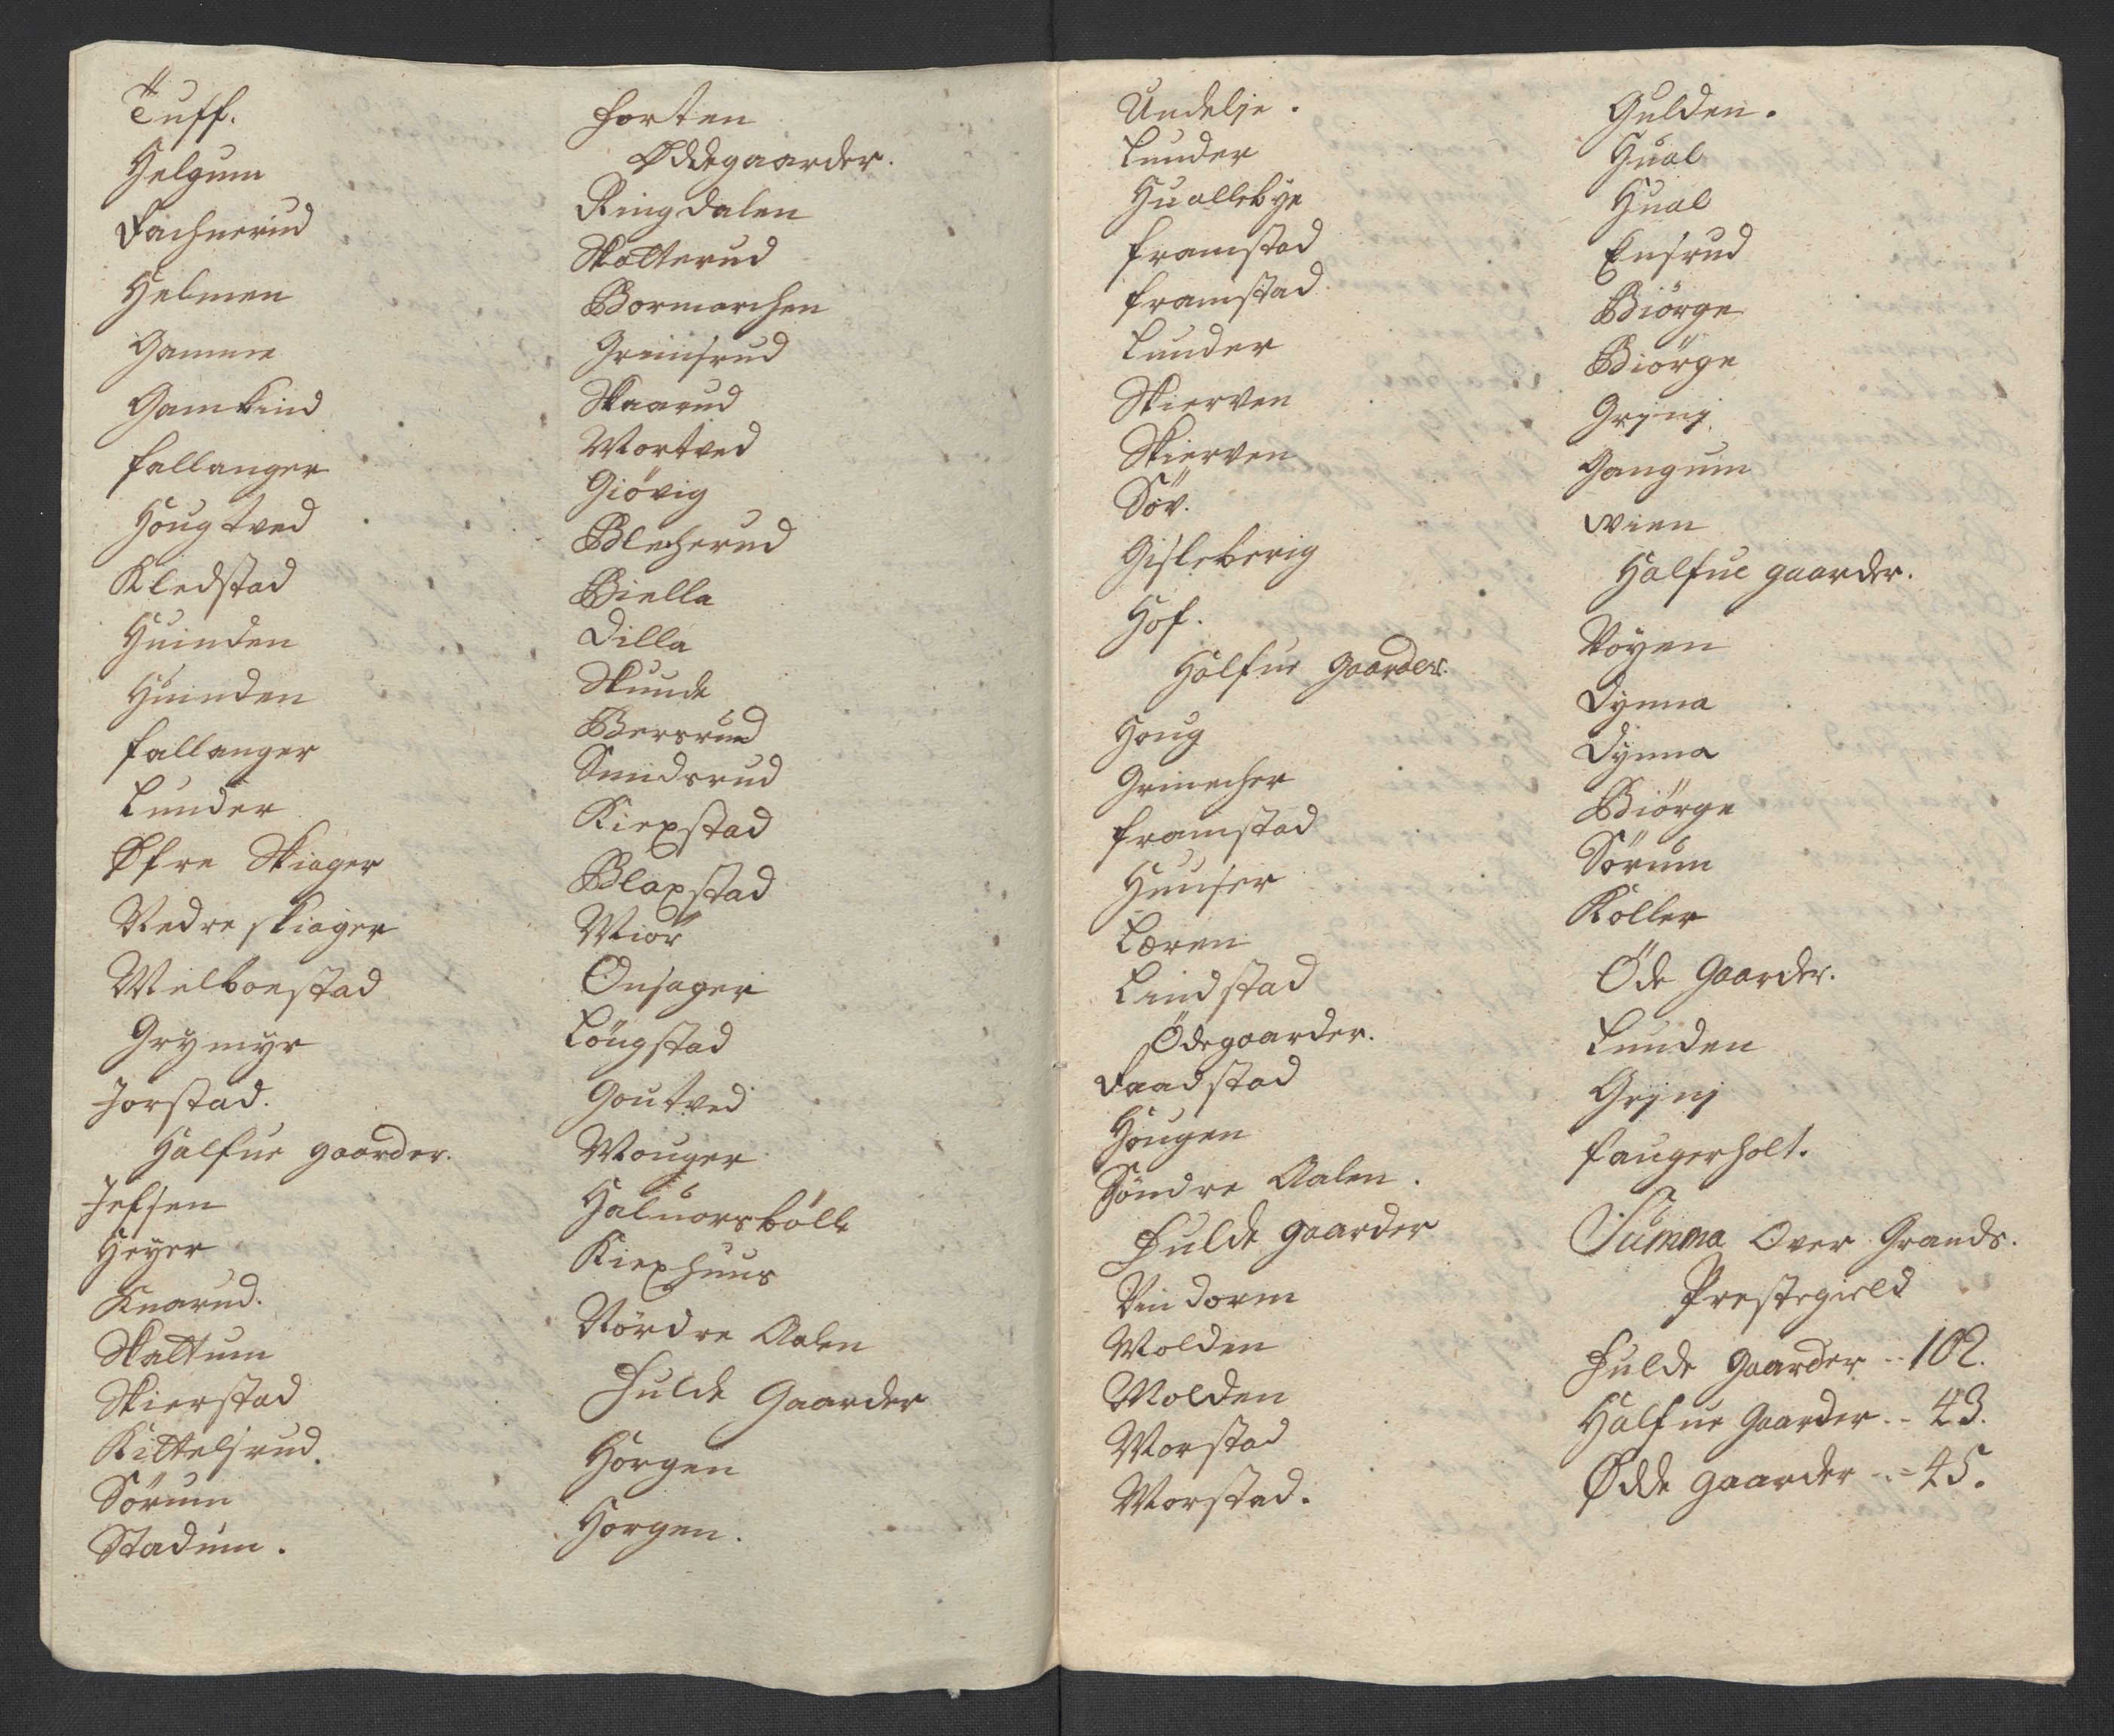 Tuff.
Helgum
Fachnerud
Helmen
Gamme
Gamkind
fallanger
Hougtved
Kledstad
Huinden
Huinden
fallanger
Lunder
Øfre Skiager
Nedre skiager
Melboestad
Grymyr
Jorstad.
Halfue gaarder.
Jefsen
Heyer
Knarud.
Skattum
Skierstad
Kittelsrud.
Sörum
Stadum.
forten
Øddegaarder.
Ringdalen
Skotterud
Bormarchen
Grimsrud
Skaarud
Mortved
Giövig
Blecherud
Biella
Dilla
Skunde
Bersrud
Smidsrud
Kiexstad
Blaxstad
Miör
Onsager
Löugstad
Goutved
Mouger
Haluorsbölle
Kiexhuus
Nördre Aalen
Fulde Gaarder
Horgen
Horgen.
Undelje.
Lunder
Huallebye
framstad
framstad
Lunder
Skierven
Skierven
Söv.
Gisleberig
Hof.
Halfue gaarder.
Houg
Grinecher
framstad
Huuser
Læren
Lindstad
Ødegaarder.
Faadstad
Hougen
Söndre Aalen.
Fulde gaarder
Vindorm
Molden
Molden
Morstad
Morstad.
Gulden.
Hual
Hual
Ensrud
Biörge
Biörge
Grjnj
Gangum
Wien
Halfue gaarder.
Röyen
Dynna
Dynna
Biörge
Sörum
Koller
Öde Gaarder.
Lunden
Grjnj
faugerholt.
Summa Over Grands.
Prestegield
Fulde Gaarder .. 102.
Halfue Gaarder .. 43.
Ødde gaarder -.- 45.